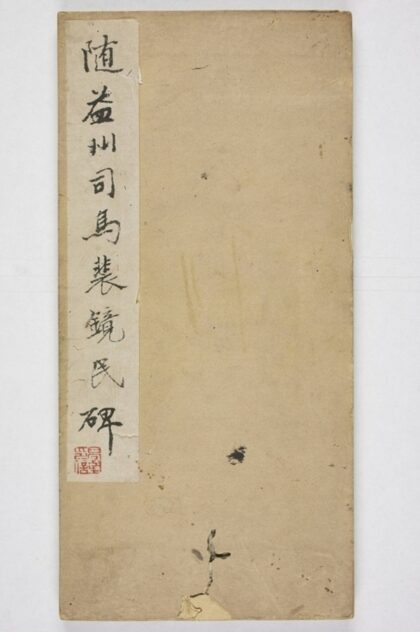 随益州司馬裴鏡民碑